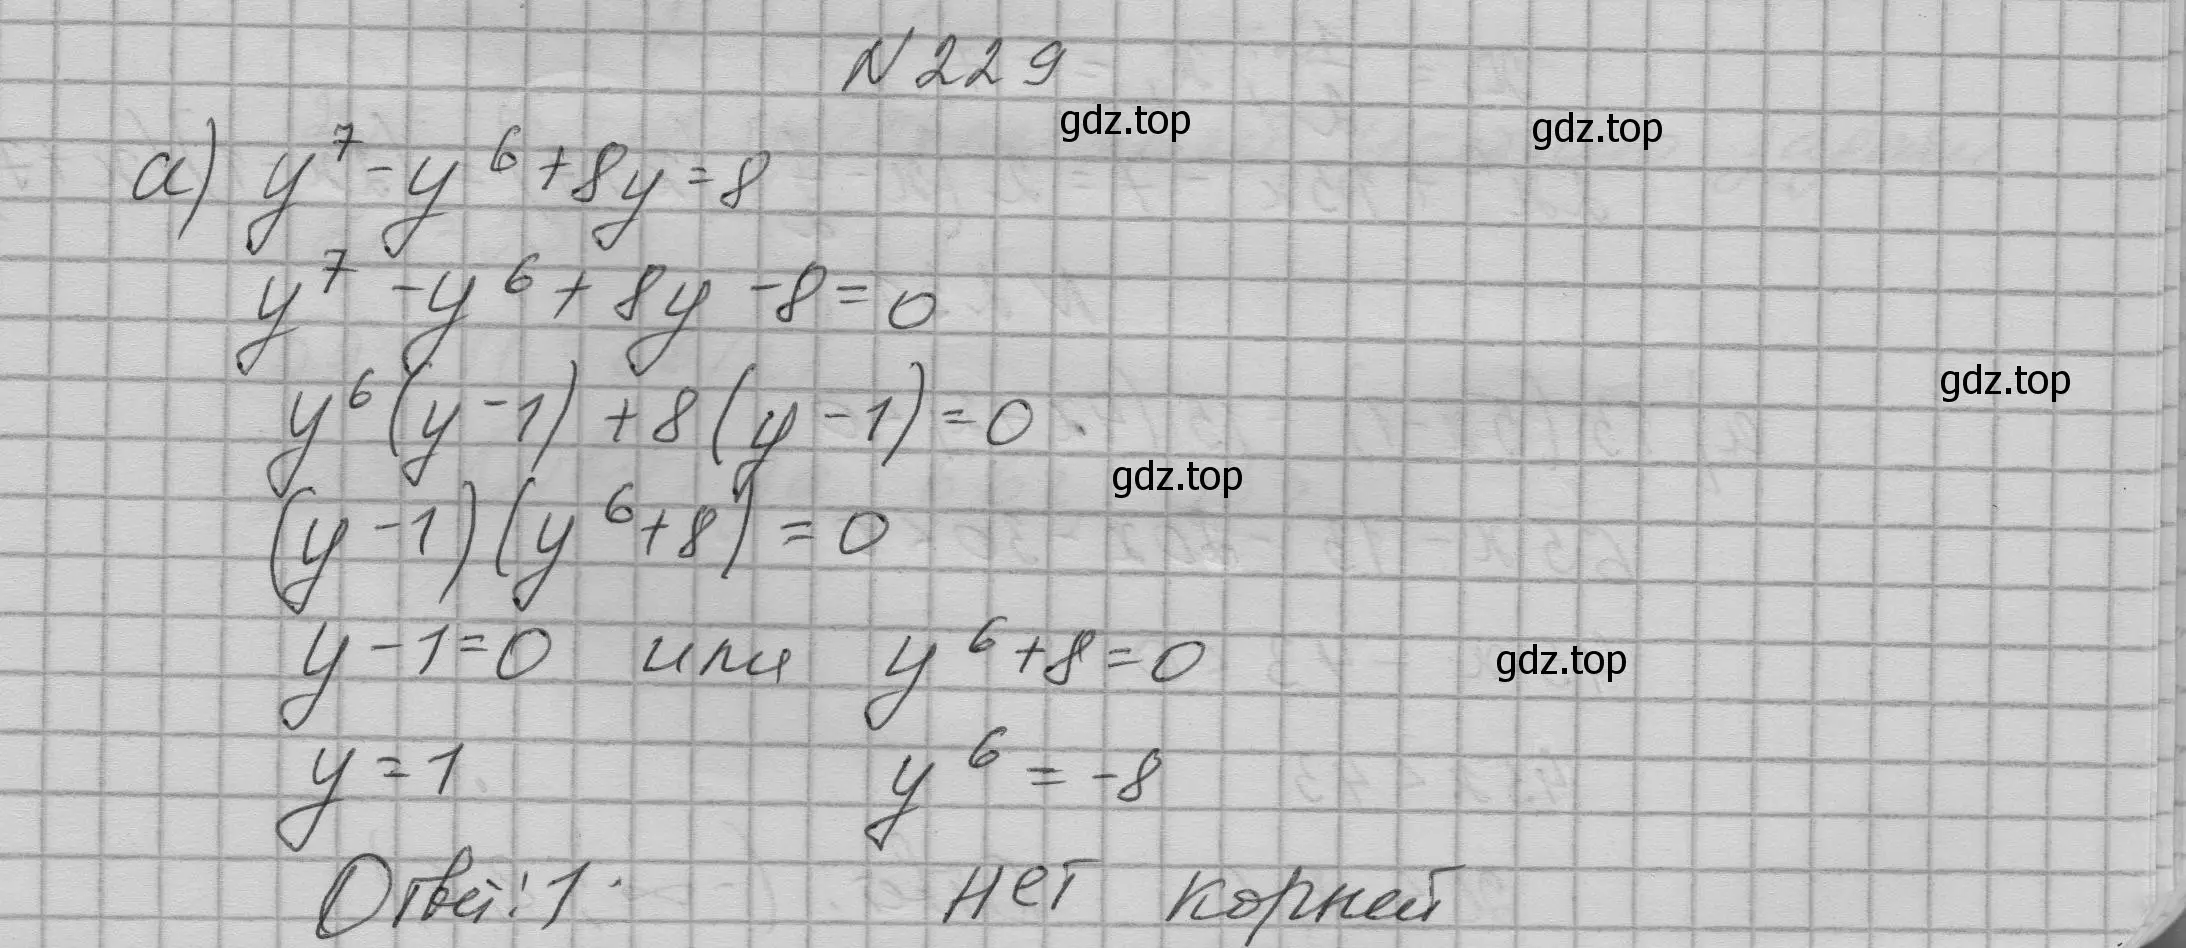 N 229
gdz.top
gdz.top
а) y⁷ - y⁶ + 8y = 8
y⁷ - y⁶ + 8y - 8 = 0
gdz.top
y⁶(y - 1) + 8(y - 1) = 0
gdz.top
(y - 1)(y⁶ + 8) = 0
y - 1 = 0 или y⁶ + 8 = 0
gdz.top
y = 1. y⁶ = -8
Ответ: 1. нет корней